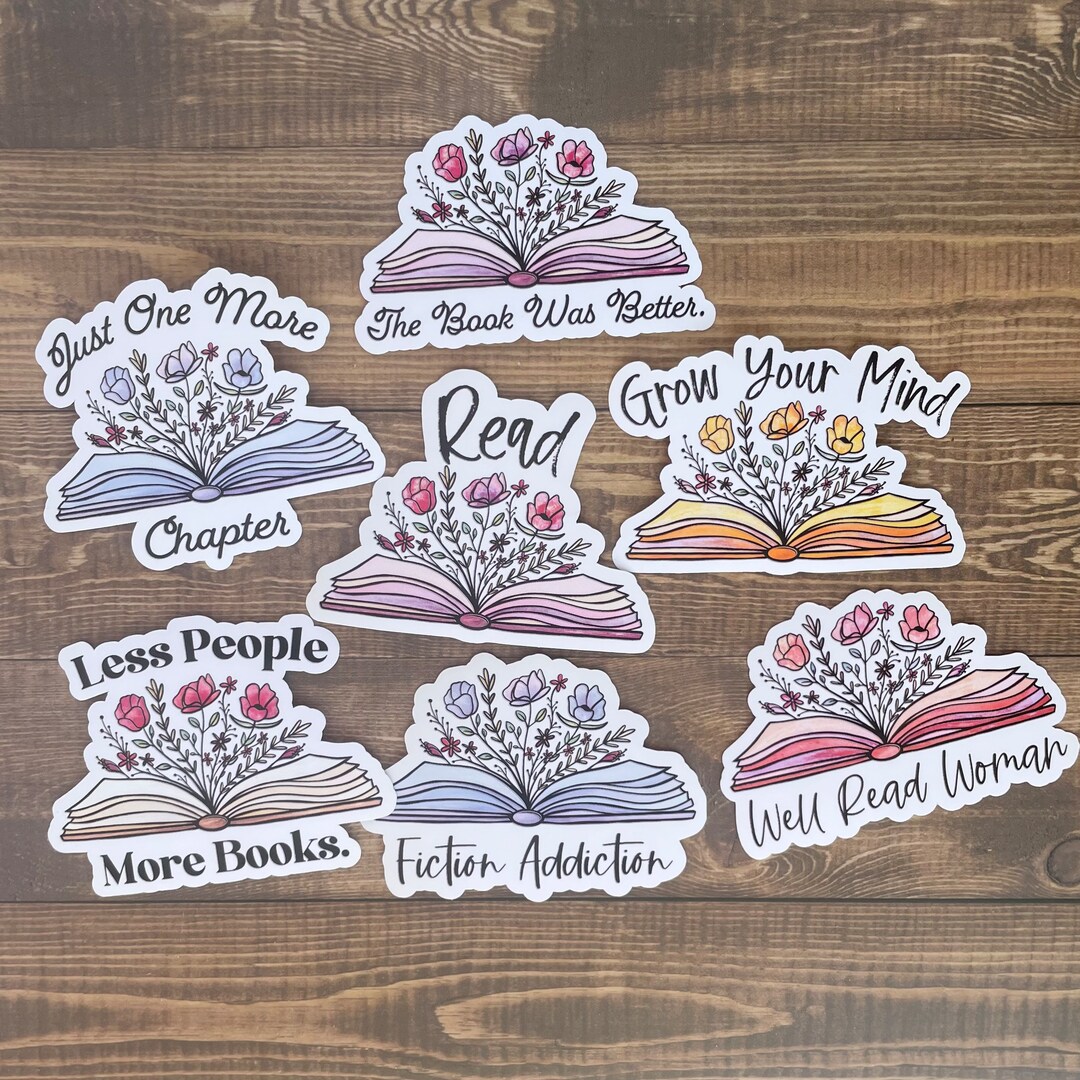 The Book Was Better.
Just One More
Chapter
Read
Grow Your Mind
Less People
More Books.
Fiction Addiction
Well Read Woman